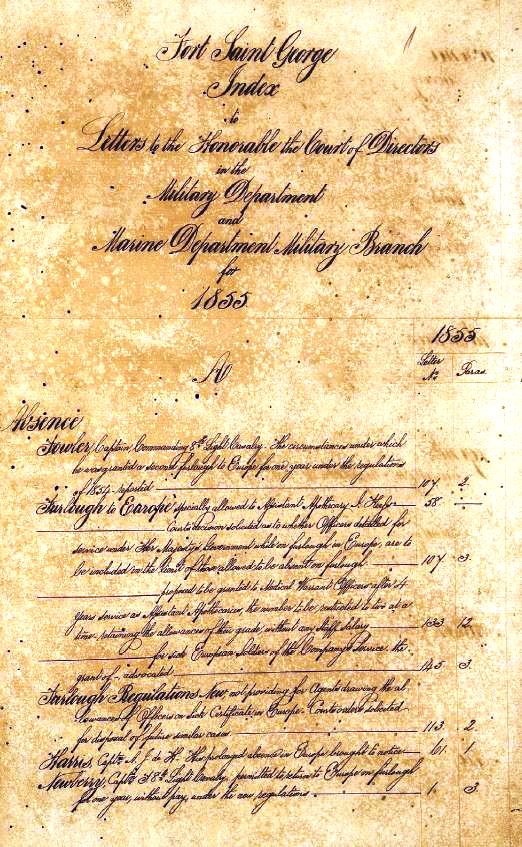 Fort Saint George
Index
to
Letters to the Honorable the Court of Directors
in the
Military Department
and
Marine Department Military Branch
for
1855
1855
Letter No Paras
A
Absence
Fowler, Captain Commanding 8th Light Cavalry. The circumstances under which
he was granted a second furlough to Europe for one year under the regulations
of 1854 reported 107 2
Furlough to Europe specially allowed to Assistant Apothecary 58
Court's decision solicited as to whether Officers detailed for
service under Her Majesty's Government while on furlough in Europe, are to
be included in the limit of leave allowed to be absent on furlough 107 3
proposed to be granted to Medical Warrant Officers after 14
years service as Assistant Apothecaries, the number to be restricted to two at a
time retaining the allowances of their grade, without any Staff Salary 133 12
for sick European Soldiers of the Company's Service, the
grant of - advocated 145 3
Furlough Regulations New not providing for Agents drawing the al
lowances of Officers on Sick Certificate in Europe. Court's orders solicited
for disposal of future similar cases 113 2
Harris, Captn N. J. de H. His prolonged absence in Europe brought to notice 61 1
Newberry, Captn 8th Light Cavalry, permitted to return to Europe on furlough
for one year, without pay, under the new regulations 1 3